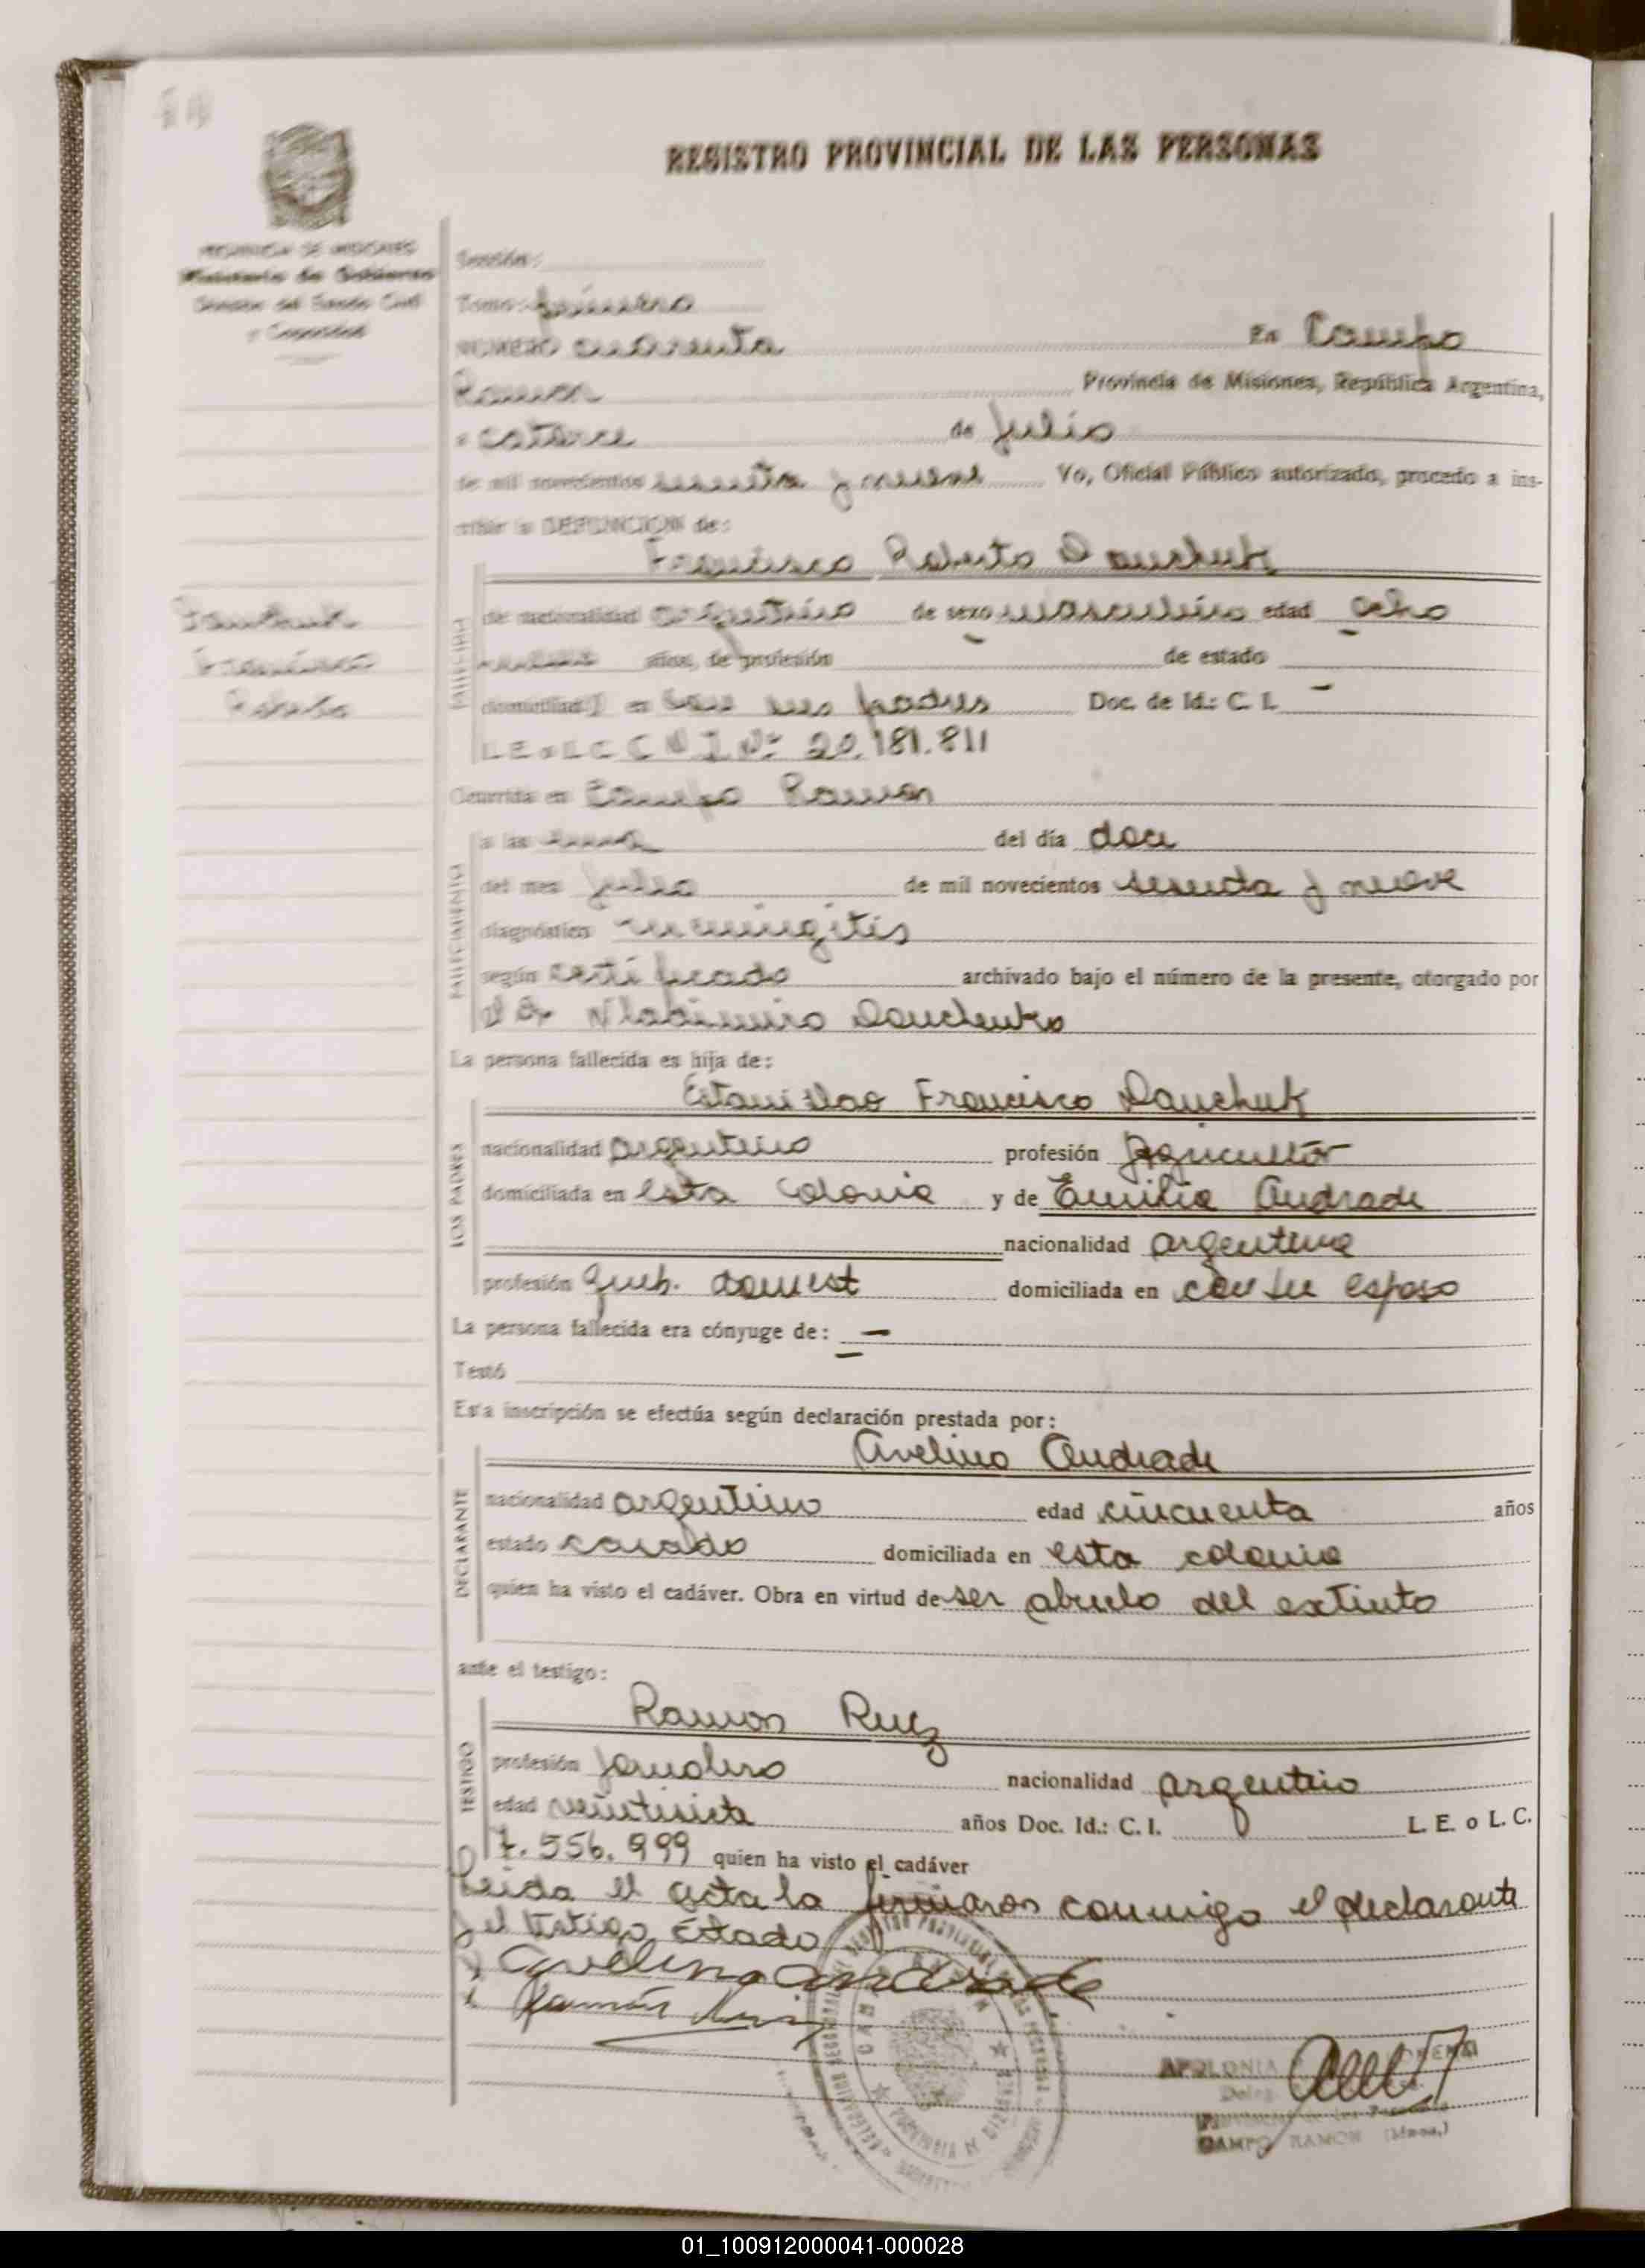 REGISTRO PROVINCIAL DE LAS PERSONAS
PROVINCIA DE MISIONES
Ministerio de Gobierno
y Capacidad
Sección:
Tomo: primero
NUMERO cuarenta En Campo
Ramon Provincia de Misiones, República Argentina,
a catorce de Julio
de mil novecientos sesenta y nueve Yo, Oficial Público autorizado, procedo a ins-
cribir la DEFUNCION de:
Francisco Roberto Dauchuk
de nacionalidad argentino de sexo masculino edad ocho
años, de profesión de estado
Dauchuk
Francisco
Roberto
domiciliad en con sus padres Doc. de Id.: C. I. —
L E o L C C N I Nº 20.181.811
Ocurrida en Campo Ramon
a las del día doce
del mes julio de mil novecientos sesenta y nueve
diagnóstico meningitis
según certificado archivado bajo el número de la presente, otorgado por
el Dr Vladimiro Dauchenko
La persona fallecida es hija de:
Estanislao Francisco Dauchuk
nacionalidad argentino profesión Agricultor
domiciliada en esta colonia y de Emilia Andrade
nacionalidad argentina
profesión queh. domest domiciliada en con su esposo
La persona fallecida era cónyuge de: —
Testó —
Esta inscripción se efectúa según declaración prestada por:
Avelino Andrade
nacionalidad argentino edad cincuenta años
estado casado domiciliada en esta colonia
quien ha visto el cadáver. Obra en virtud de ser abuelo del extinto
ante el testigo:
Ramon Ruiz
profesión jornalero nacionalidad argentino
edad veintisiete años Doc. Id.: C. I. L. E. o L. C.
7.556.999 quien ha visto el cadáver
Leida el acta la firmaron conmigo el declarante
y el testigo citado
Avelino Andrade
Ramón Ruiz
APOLONIA
CAMPO RAMON (Mnes.)
FALLECIDA
FALLECIMIENTO
LOS PADRES
DECLARANTE
TESTIGO
01_100912000041-000028